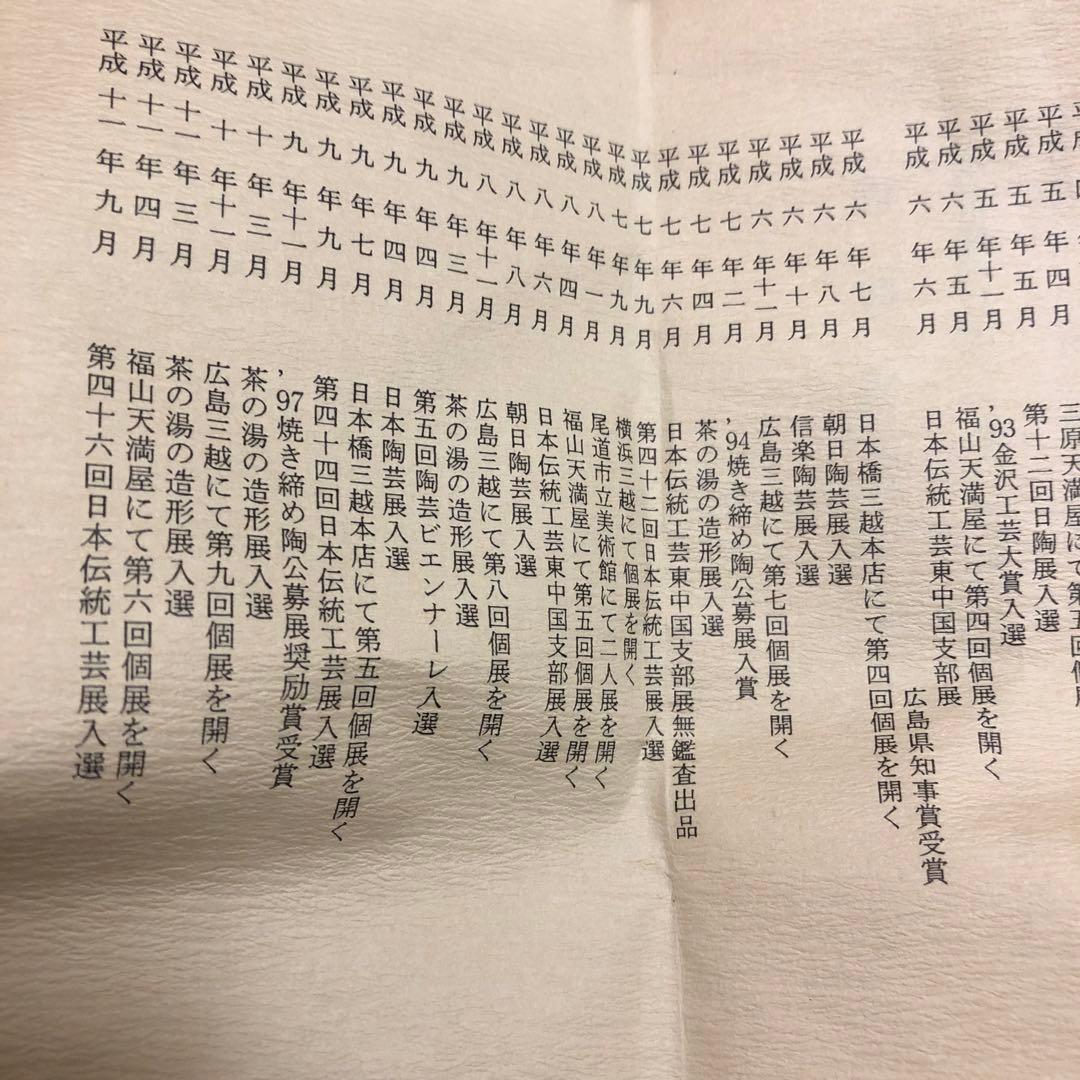 平成五年四月 三原天満屋にて第五回個展
平成五年五月 第十二回日陶展入選
平成五年十一月 '93金沢工芸大賞入選
平成六年五月 福山天満屋にて第四回個展を開く
平成六年六月 日本伝統工芸東中国支部展
広島県知事賞受賞
平成六年七月 日本橋三越本店にて第四回個展を開く
平成六年八月 朝日陶芸展入選
平成六年十月 信楽陶芸展入選
平成六年十一月 広島三越にて第七回個展を開く
平成七年二月 '94焼き締め陶公募展入賞
平成七年四月 茶の湯の造形展入選
平成七年六月 日本伝統工芸東中国支部展無鑑査出品
平成七年九月 第四十二回日本伝統工芸展入選
平成七年九月 横浜三越にて個展を開く
平成八年一月 尾道市立美術館にて二人展を開く
平成八年四月 福山天満屋にて第五回個展を開く
平成八年六月 日本伝統工芸東中国支部展入選
平成八年八月 朝日陶芸展入選
平成八年十一月 広島三越にて第八回個展を開く
平成九年三月 茶の湯の造形展入選
平成九年四月 第五回陶芸ビエンナーレ入選
平成九年四月 日本陶芸展入選
平成九年七月 日本橋三越本店にて第五回個展を開く
平成九年九月 第四十四回日本伝統工芸展入選
平成九年十一月 '97焼き締め陶公募展奨励賞受賞
平成十年三月 茶の湯の造形展入選
平成十年十一月 広島三越にて第九回個展を開く
平成十一年三月 茶の湯の造形展入選
平成十一年四月 福山天満屋にて第六回個展を開く
平成十一年九月 第四十六回日本伝統工芸展入選